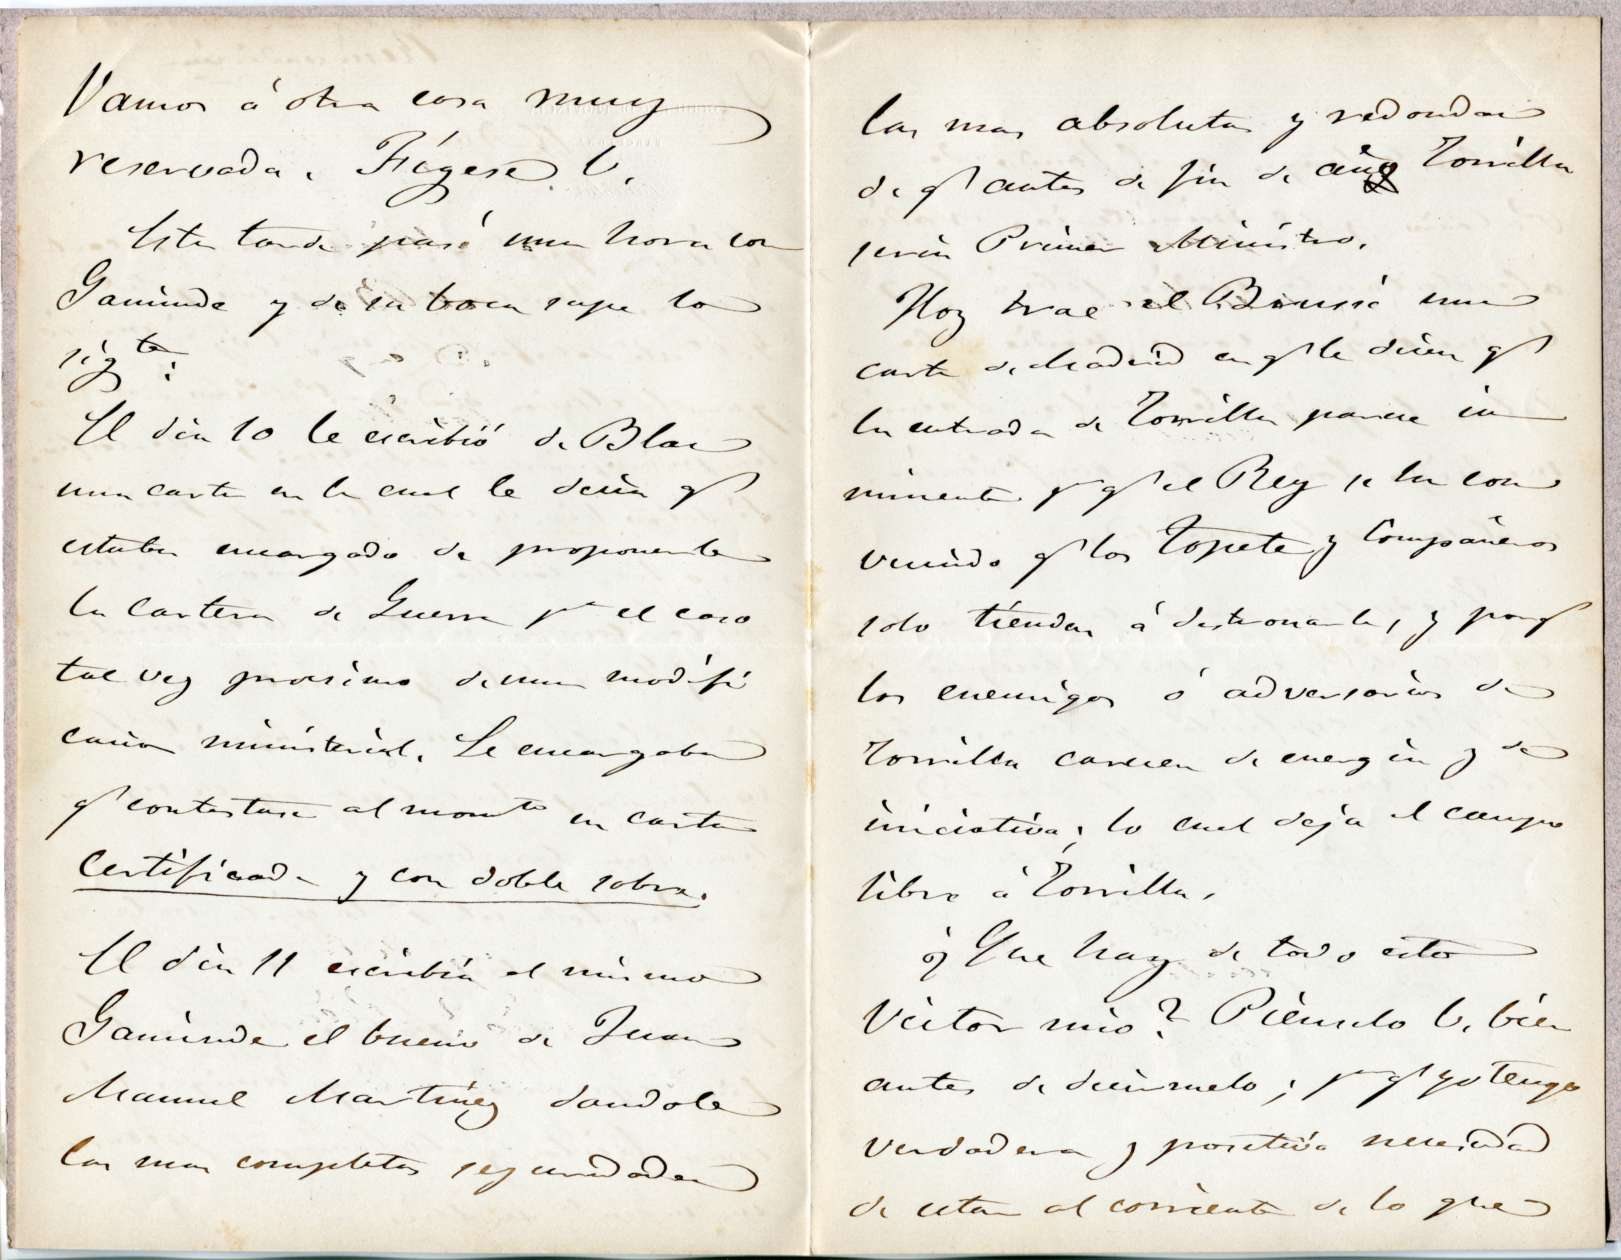 Vamos á otra cosa muy
reservada. Fígese V.
Esta tarde pasé una hora con
Gaminde y de su boca supe lo
sigte:
El dia 10 le escribió de Blas
una carta en la cual le decia qe
estaba encargado de proponerle
la Cartera de Guerra pa el caso
tal vez proximo de una modifi
cacion ministerial. Le encargaba
qe contestase al momto en carta
certificada y con doble sobre.
El dia 11 escribia al mismo
Gaminde el bueno de Juan
Manuel Martínez dandole
las mas completas seguridades
las mas absolutas y redondas
de qe antes de fin de año Zorrilla
seria Primer Ministro.
Hoy trae el Brusi una
carta de Madrid en qe le dicen qe
la entrada de Zorrilla parece in
minente pr qe el Rey se ha con
vencido qe los Topete y Compañeros
solo tienden á destronarle, y porqe
los enemigos ó adversarios de
Zorrilla carecen de energia y de
iniciativa; lo cual deja el campo
libre á Zorrilla.
¿Que hay de todo esto
Victor mio? Piénselo V. bien
antes de decírmelo; pr qe yo tengo
verdadera y positiva necesidad
de estar al corriente de lo que